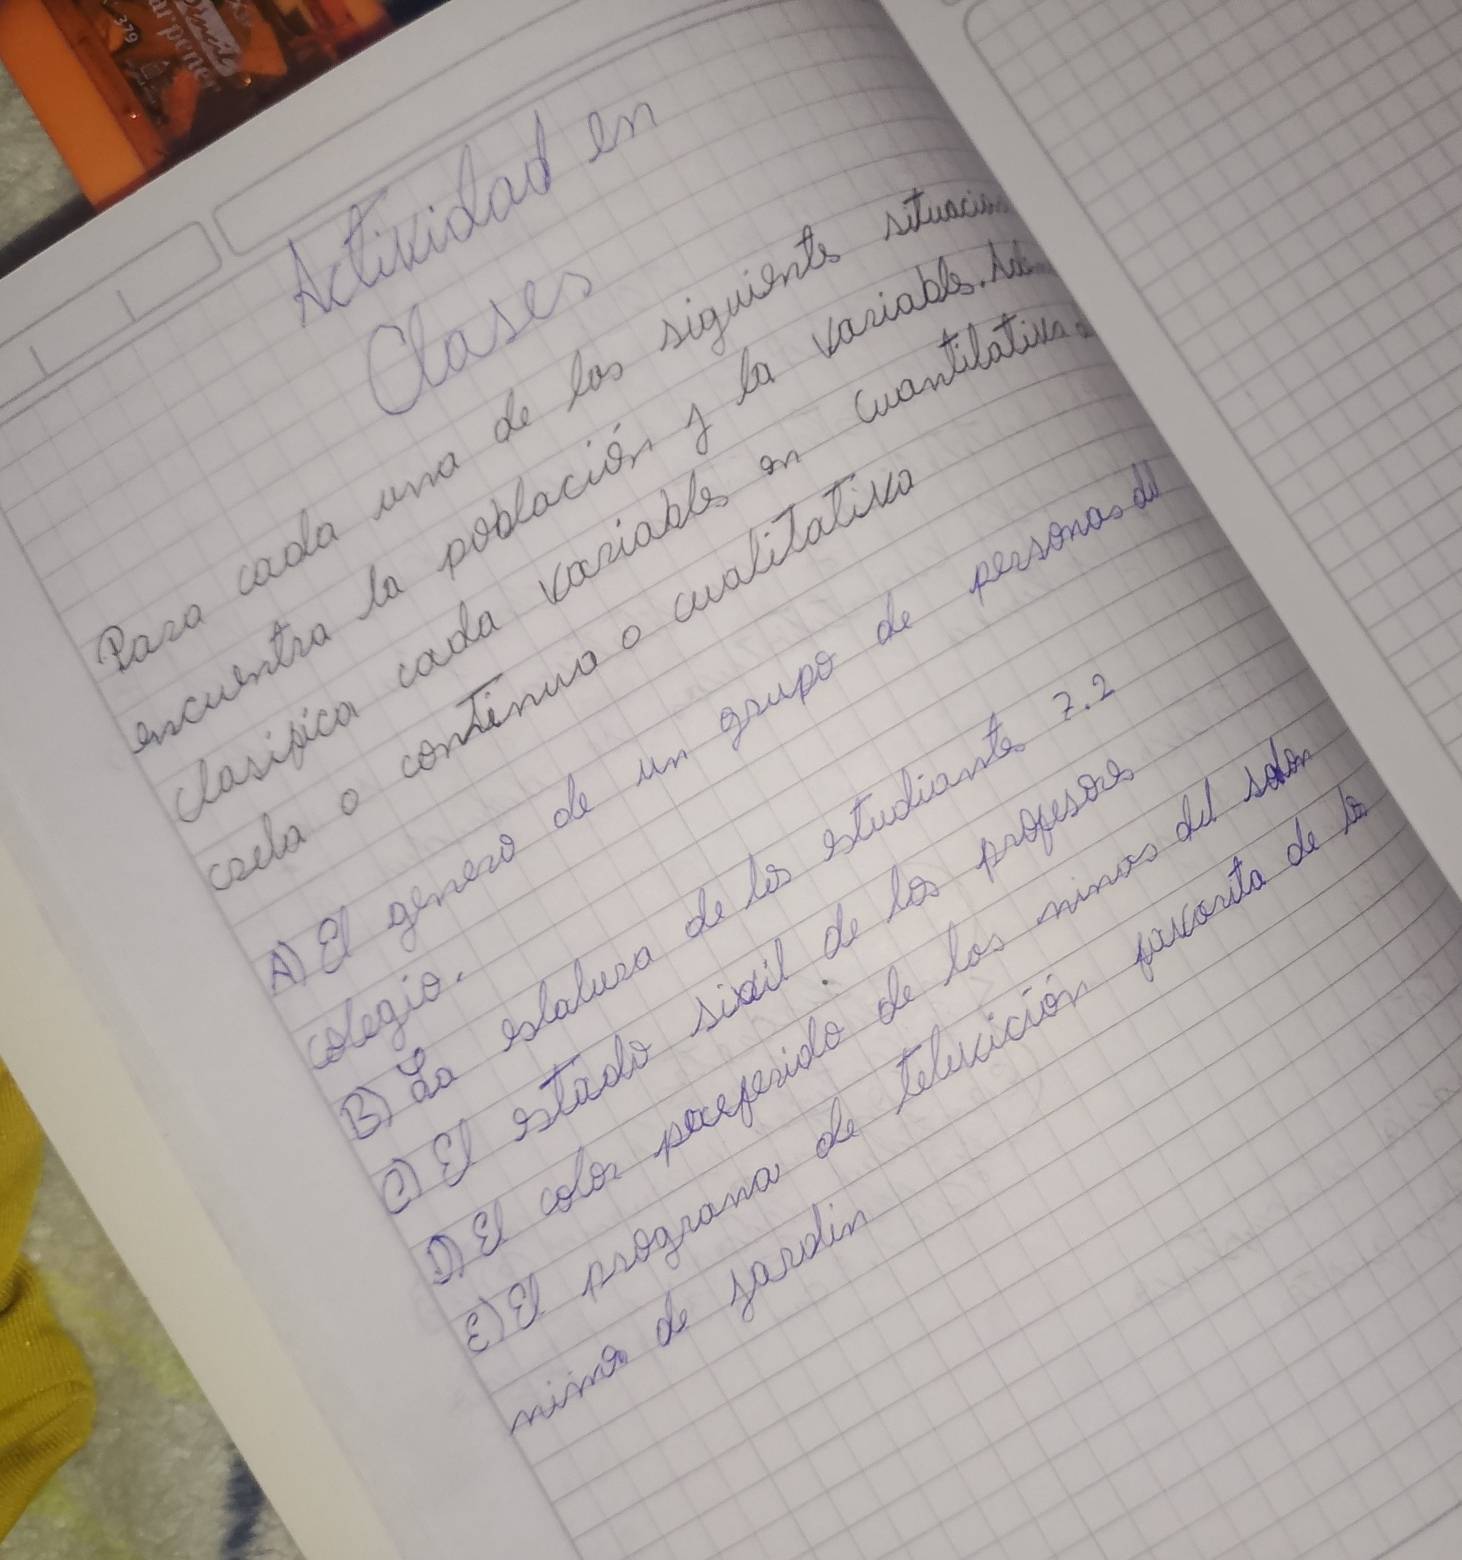 379
Actividad en
Clases
Para cada una de las siguiente situacion
encuentra la población y la variable.
clasifica cada variable en cuantitativa
o continua o cualitativa
A) El genero de un grupo de personas del
colegio.
B) La estatura de los estudiantes 7.2
C) El estado sixil de los profesores
D) El color preferido de los ninos del salon
E) El programa de televición favorita de lo
nino de jardin